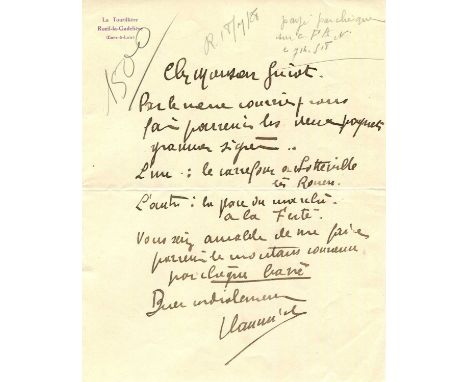 La Tourillière
Rueil-la-Gadelière
(Eure-&-Loir)
1500
R. 18/9/58
payé par chèque
sur
Cher Monsieur
Par le même courrier je vous
fais parvenir les deux paysages
gravures signées
L'une : le carrefour à Sotteville
lès Rouen.
L'autre : la place du marché
à la Ferté.
Vous seriez aimable de me faire
parvenir le montant convenu
par chèque barré
Bien cordialement
Vlaminck